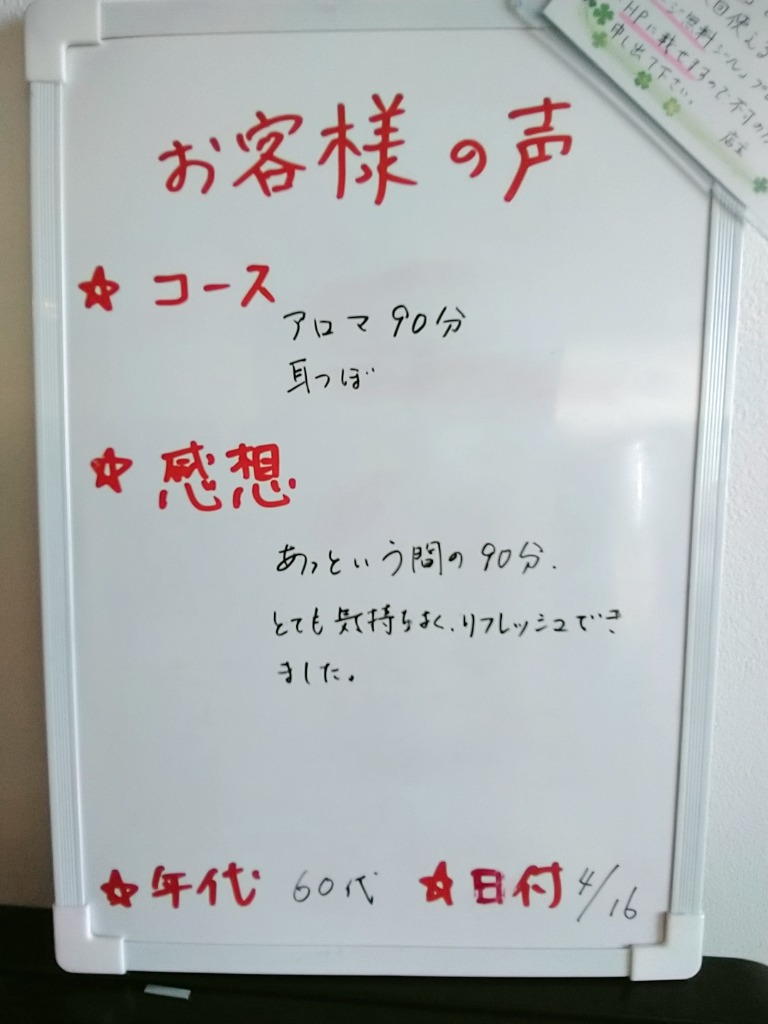 お客様の声
★ コース
アロマ 90分
耳つぼ
★ 感想
あっという間の90分.
とても気持ちよく、リフレッシュでき
ました。
★ 年代 60代 ★ 日付 4/16
回使える
無料シール」プロ
HPに載せするので、不可の方
申し出て下さい。
店主